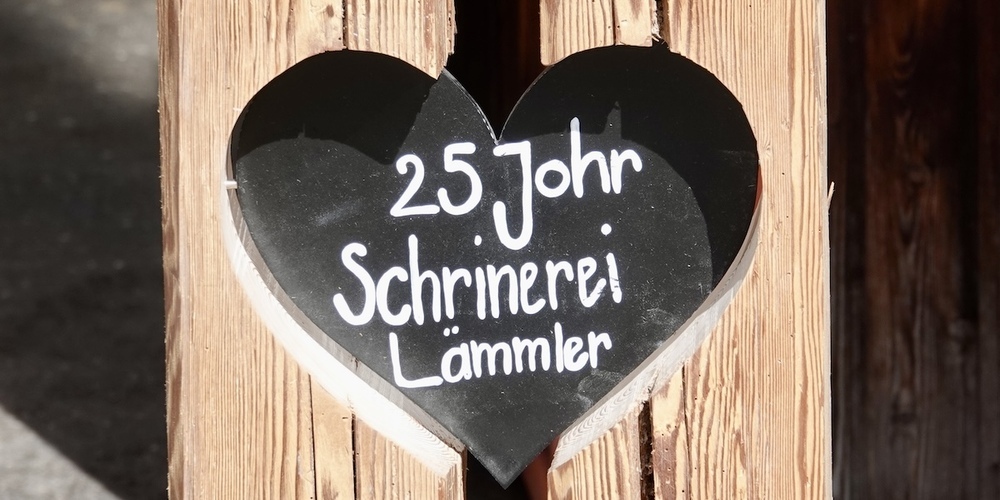 25 Johr
Schrinerei
Lämmler